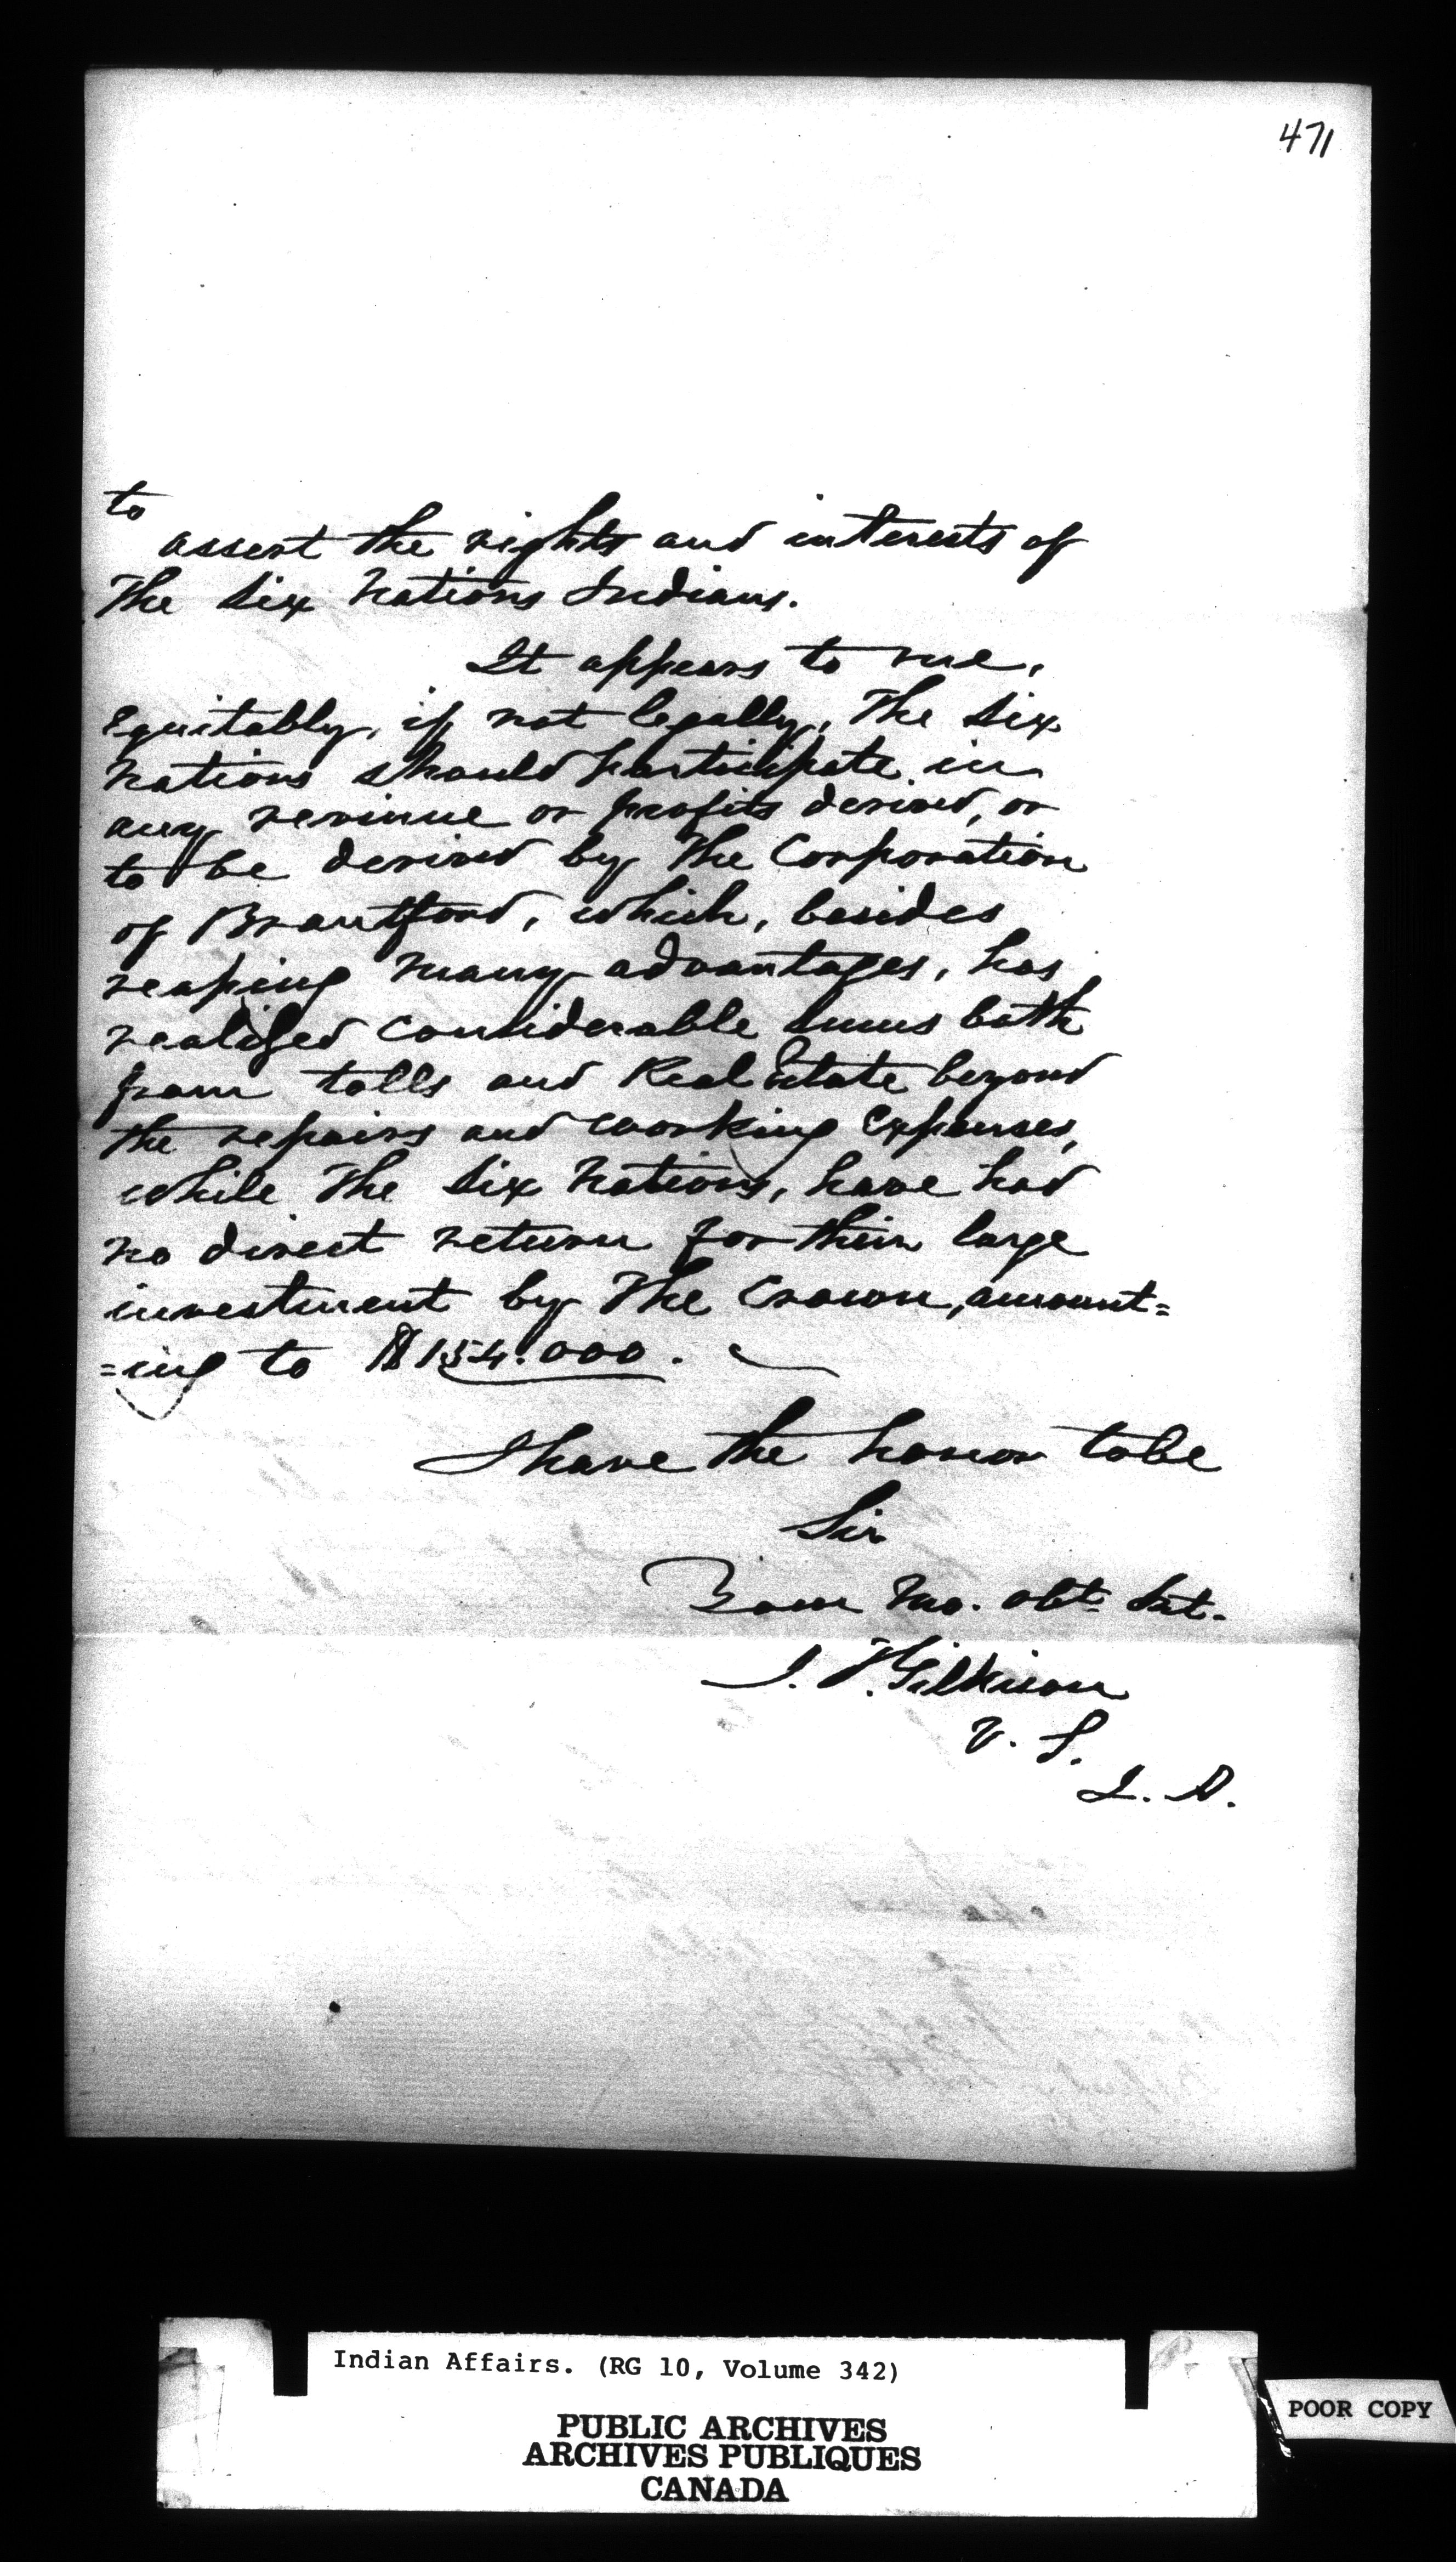 471
to
assert the rights and interests of
The Six Nations Indians.
It appears to me,
Equitably, if not legally, The Six
Nations should participate in
any revenue or profits derived, or
to be derived by The Corporation
of Brantford, which, besides
reaping many advantages, has
realised considerable sums both
from tolls and Real Estate beyond
the repairs and working Expenses,
while The Six Nations, have had
no direct return for their large
investment by The Crown, amount=
=ing to $154.000.
I have the honor to be
Sir
Your Mo. obt. Svt.
J. T. Gilkison
V. S.
I. A.
Indian Affairs. (RG 10, Volume 342)
PUBLIC ARCHIVES
ARCHIVES PUBLIQUES
CANADA
POOR COPY